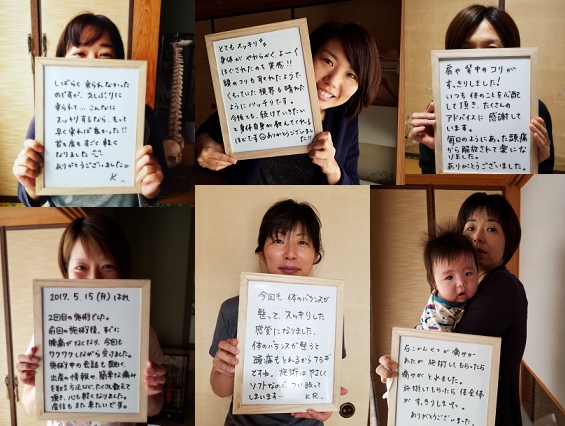 しばらく来られなかった
のですが、久しぶりに
来られて…こんなに
スッキリするなら、もっと
早く来れば良かった!!
首と肩もすごく軽く
なりました
ありがとうございました
K
とてもスッキリ
身体が やわらかく、よーく
ほぐされたのを実感!!
頭のコリも取れたようで
くもっていた視界も晴れた
ようにパッチリです。
今後とも、続けていきたい
と身体自身が飲んでくれる
ほどです ありがとうございまし
た!!
肩や背中のコリが
すっきりしました!
いつも体のことを心配
して頂き、たくさんの
アドバイスに感謝して
います。
毎日のようにあった頭痛
から解放されて楽にな
りました。
ありがとうございました。
2017. 5. 15 (月) はれ
2回目の施術でした。
前回の施術後、すぐに
腰痛がなくなり、今回も
ワクワクしながら受けました。
施術中の会話も面白く、
出産の情報や、簡単な痛み
を取る方法など、たくさん教えて
頂き、心も軽くなりました。
産後もまた来たいです。
今回も 体のバランスが
整って、スッキリした
感覚になりました。
体のバランスが整うと
頭痛もとれるからフシギ
ですね。 施術はやさしく
ソフトなのでつい眠って
しまいます…
K R
右こかんせつが痛かっ
たが施術してもらったら
痛みがとれました。
施術してもらったら体全体
がすっきりしました。
ありがとうございました。